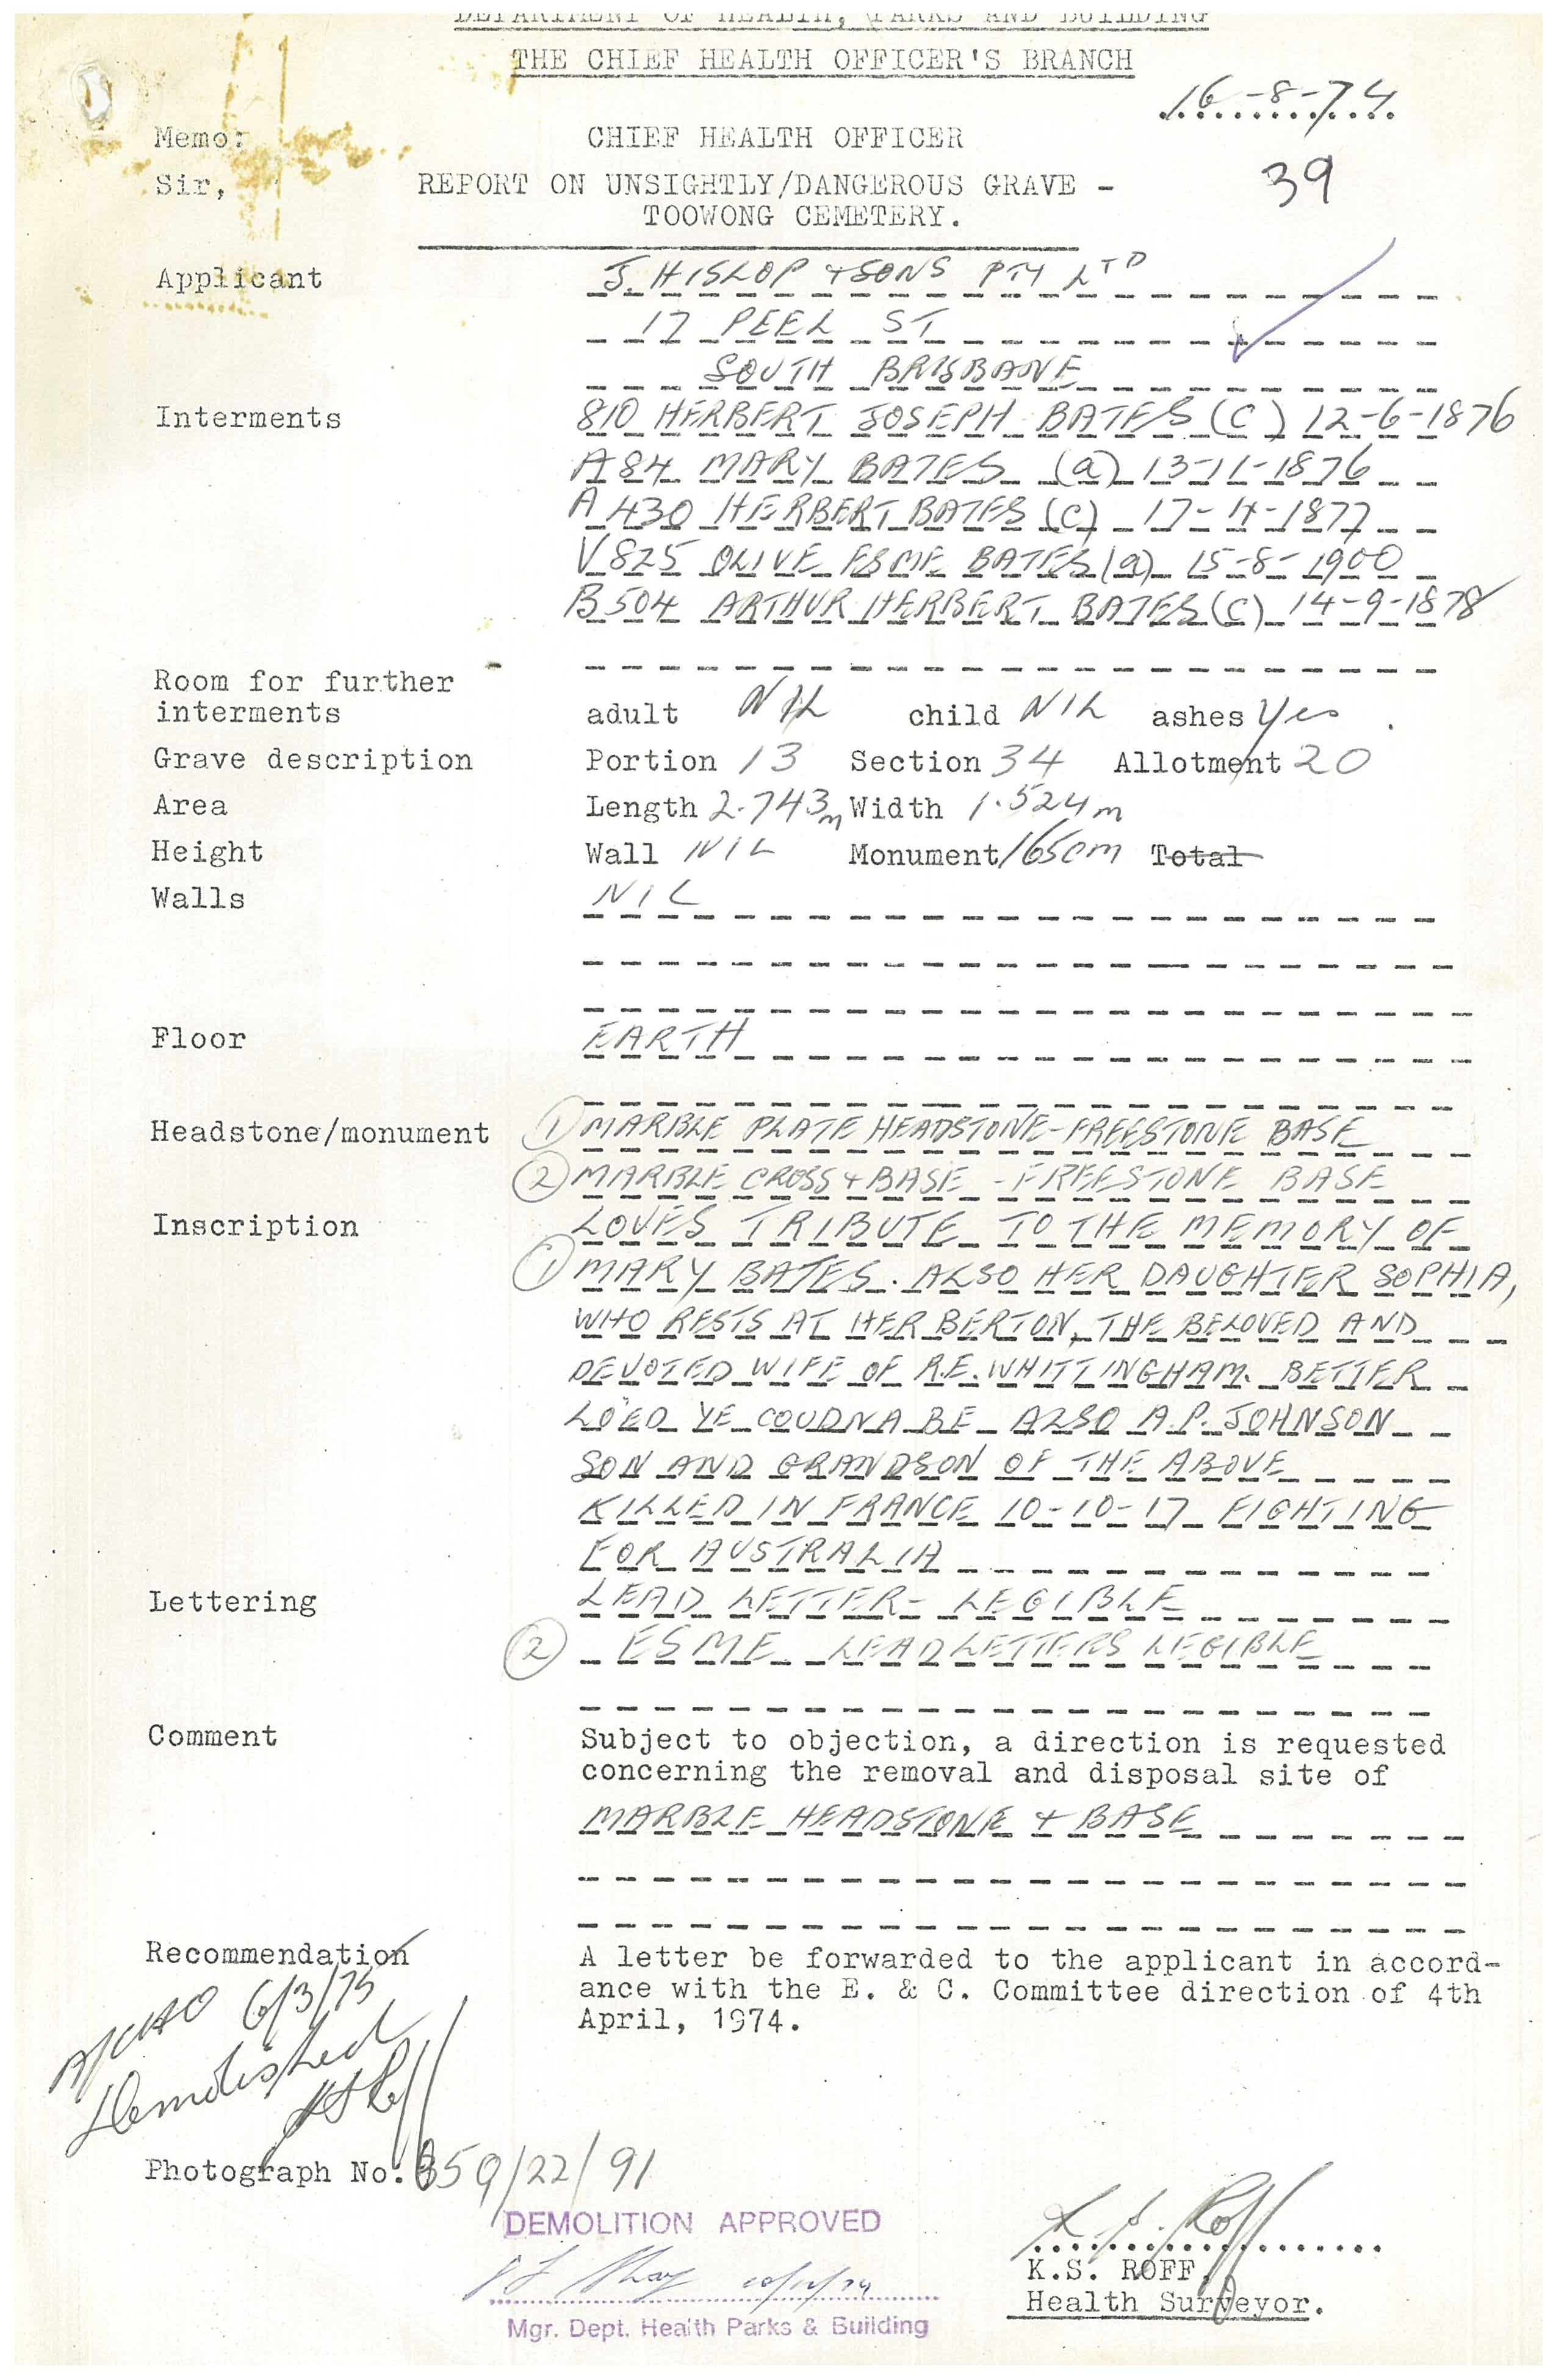 DEPARTMENT OF HEALTH, PARKS AND BUILDING
THE CHIEF HEALTH OFFICER'S BRANCH
16-8-74
Memo: CHIEF HEALTH OFFICER
Sir, REPORT ON UNSIGHTLY/DANGEROUS GRAVE - 39
TOOWONG CEMETERY.
Applicant J. HISLOP + SONS PTY LTD
17 PEEL ST
SOUTH BRISBANE
Interments 810 HERBERT JOSEPH BATES (C) 12-6-1876
A 84 MARY BATES (a) 13-11-1876
A 430 HERBERT BATES (C) 17-4-1877
V 825 OLIVE ESME BATES (a) 15-8-1900
B 504 ARTHUR HERBERT BATES (C) 14-9-1878
Room for further
interments adult NIL child NIL ashes Yes .
Grave description Portion 13 Section 34 Allotment 20
Area Length 2.743m Width 1.524m
Height Wall NIL Monument 165cm Total
Walls NIL
Floor EARTH
Headstone/monument (1) MARBLE PLATE HEADSTONE - FREESTONE BASE
(2) MARBLE CROSS + BASE - FREESTONE BASE
Inscription LOVES TRIBUTE TO THE MEMORY OF
(1) MARY BATES. ALSO HER DAUGHTER SOPHIA,
WHO RESTS AT HERBERTON, THE BELOVED AND
DEVOTED WIFE OF R.E. WHITTINGHAM. BETTER
LO'ED YE COUDNA BE ALSO A.P. JOHNSON
SON AND GRANDSON OF THE ABOVE
KILLED IN FRANCE 10-10-17 FIGHTING
FOR AUSTRALIA
Lettering LEAD LETTER - LEGIBLE
(2) ESME LEAD LETTERS LEGIBLE
Comment Subject to objection, a direction is requested
concerning the removal and disposal site of
MARBLE HEADSTONE + BASE
Recommendation A letter be forwarded to the applicant in accord-
ance with the E. & C. Committee direction of 4th
April, 1974.
6/3/75
Demolished
Photograph No. 859/22/91
DEMOLITION APPROVED
K.S. Roff
K.S. ROFF,
Health Surveyor.
Mgr. Dept. Health Parks & Building